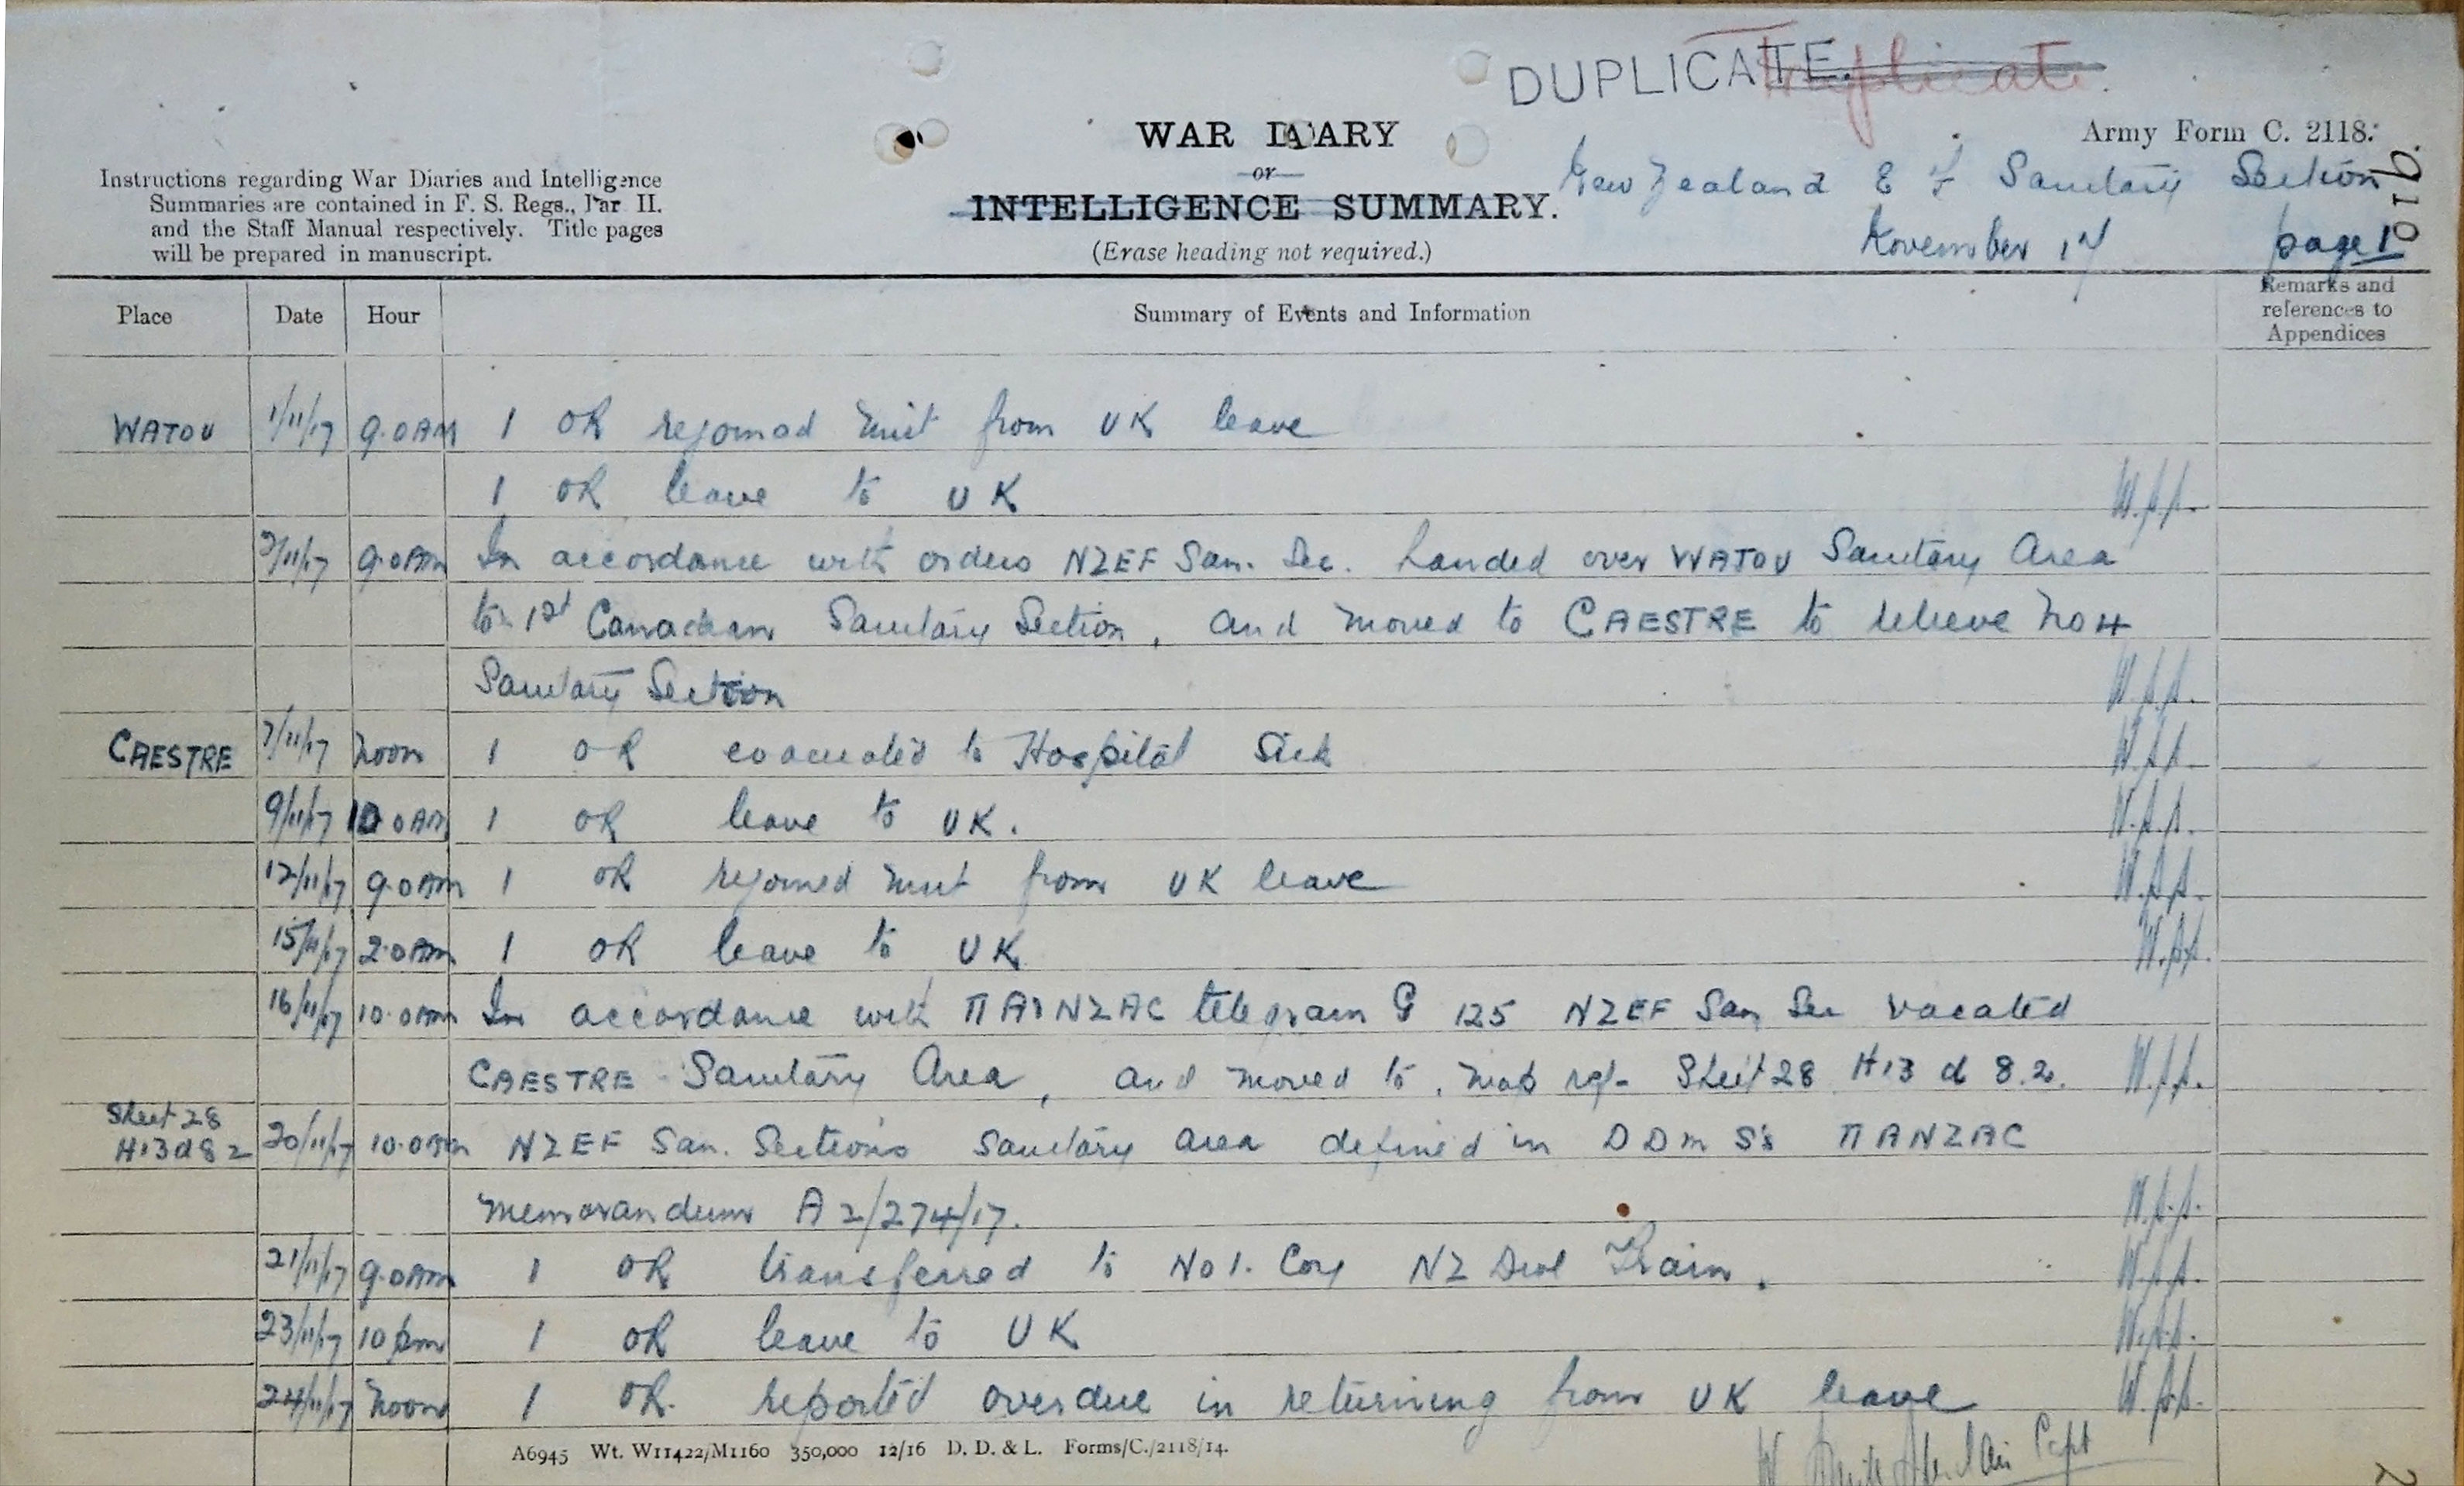 DUPLICATE. Triplicate.
WAR DIARY
Army Form C. 2118.
or
INTELLIGENCE SUMMARY.
(Erase heading not required.)
Instructions regarding War Diaries and Intelligence
Summaries are contained in F. S. Regs., Par II.
and the Staff Manual respectively. Title pages
will be prepared in manuscript.
New Zealand E F Sanitary Section
November 17 page 1
910
Place Date Hour Summary of Events and Information Remarks and
references to
Appendices
WATOU 1/11/17 9.0AM 1 OR rejoined unit from UK leave
1 OR leave to UK
9.0AM In accordance with orders NZEF San. Sec. handed over WATOU Sanitary Area
to 1st Canadian Sanitary Section, and moved to CAESTRE to relieve No 4
Sanitary Section
CAESTRE 7/11/17 Noon 1 OR evacuated to Hospital Sick
9/11/17 10.0AM 1 OR leave to UK.
12/11/17 9.0AM 1 OR rejoined unit from UK leave
15/11/17 2.0AM 1 OR leave to UK
16/11/17 10.0AM In accordance with II ANZAC telegram G 125 NZEF San Sec vacated
CAESTRE Sanitary Area, and moved to, map ref- Sheet 28 H13 d 8.2.
Sheet 28
H13d82 20/11/17 10.0AM NZEF San. Sections Sanitary area defined in DDMS's II ANZAC
Memorandum A2/274/17.
21/11/17 9.0AM 1 OR transferred to No 1. Coy NZ Divl Train.
23/11/17 10pm 1 OR leave to UK
24/11/17 Noon 1 OR. reported overdue in returning from UK leave
A6945 Wt. W11422/M1160 350,000 12/16 D. D. & L. Forms/C./2118/14.
Capt